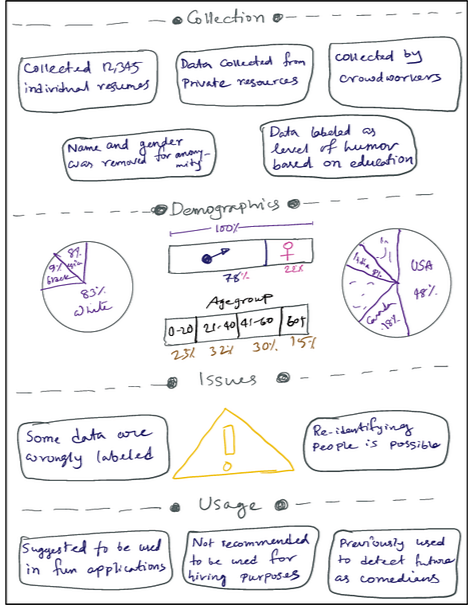 Collection
Collected 12,345
individual resumes
Data Collected from
Private resources
collected by
crowdworkers
Name and gender
was removed for anony-
mity
Data labeled as
level of humor
based on education
Demographics
100%
78%
22%
8%
9%
Black
83%
White
USA
48%
India 8%
Canada
18%
Agegroup
0-20 21-40 41-60 60+
25% 32% 30% 15%
Issues
Some data are
wrongly labeled
Re-identifying
People is possible
Usage
Suggested to be used
in fun applications
Not recommended
to be used for
hiring purposes
Previously used
to detect future
as comedians